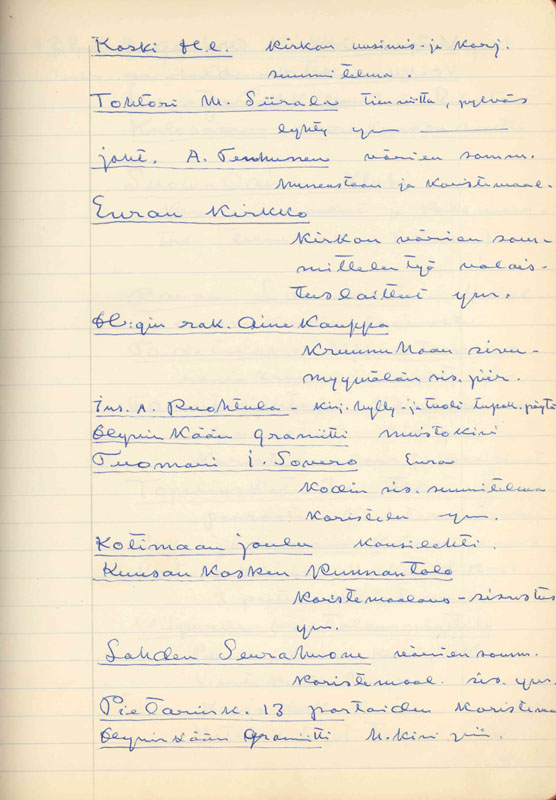 Koski Hl. Kirkon uusimis- ja korj.
suunnitelma.
Tohtori M. Siirala tienviitta, pylväs
lyhty ym
joht. A. Tenhunen värien somm.
huoneistoon ja koristemaal.
Euran Kirkko
Kirkon värien som-
mittelu työ valais-
tuslaitteet ym.
Hl:gin rak. Aine Kauppa
Kruunu Haan sivu-
myymälän sis. piir.
Ins. A. Ruohtula - Kirj. hylly - ja tuoli tupak. pöytä
Kään graniitti muistokivi
Tuomari I. Sovero Eura
Kodin sis. suunnitelma
Koristelu ym.
Kotimaan joulu Kansilehti.
Kuusan Kosken Kunnantalo
Koristemaalaus - sisustus
ym.
Lahden Seurahuone värien somm.
Koristemaal. sis. ym.
Pietarink. 13 portaiden Koristema
Kään graniitti M. Kivi piir.